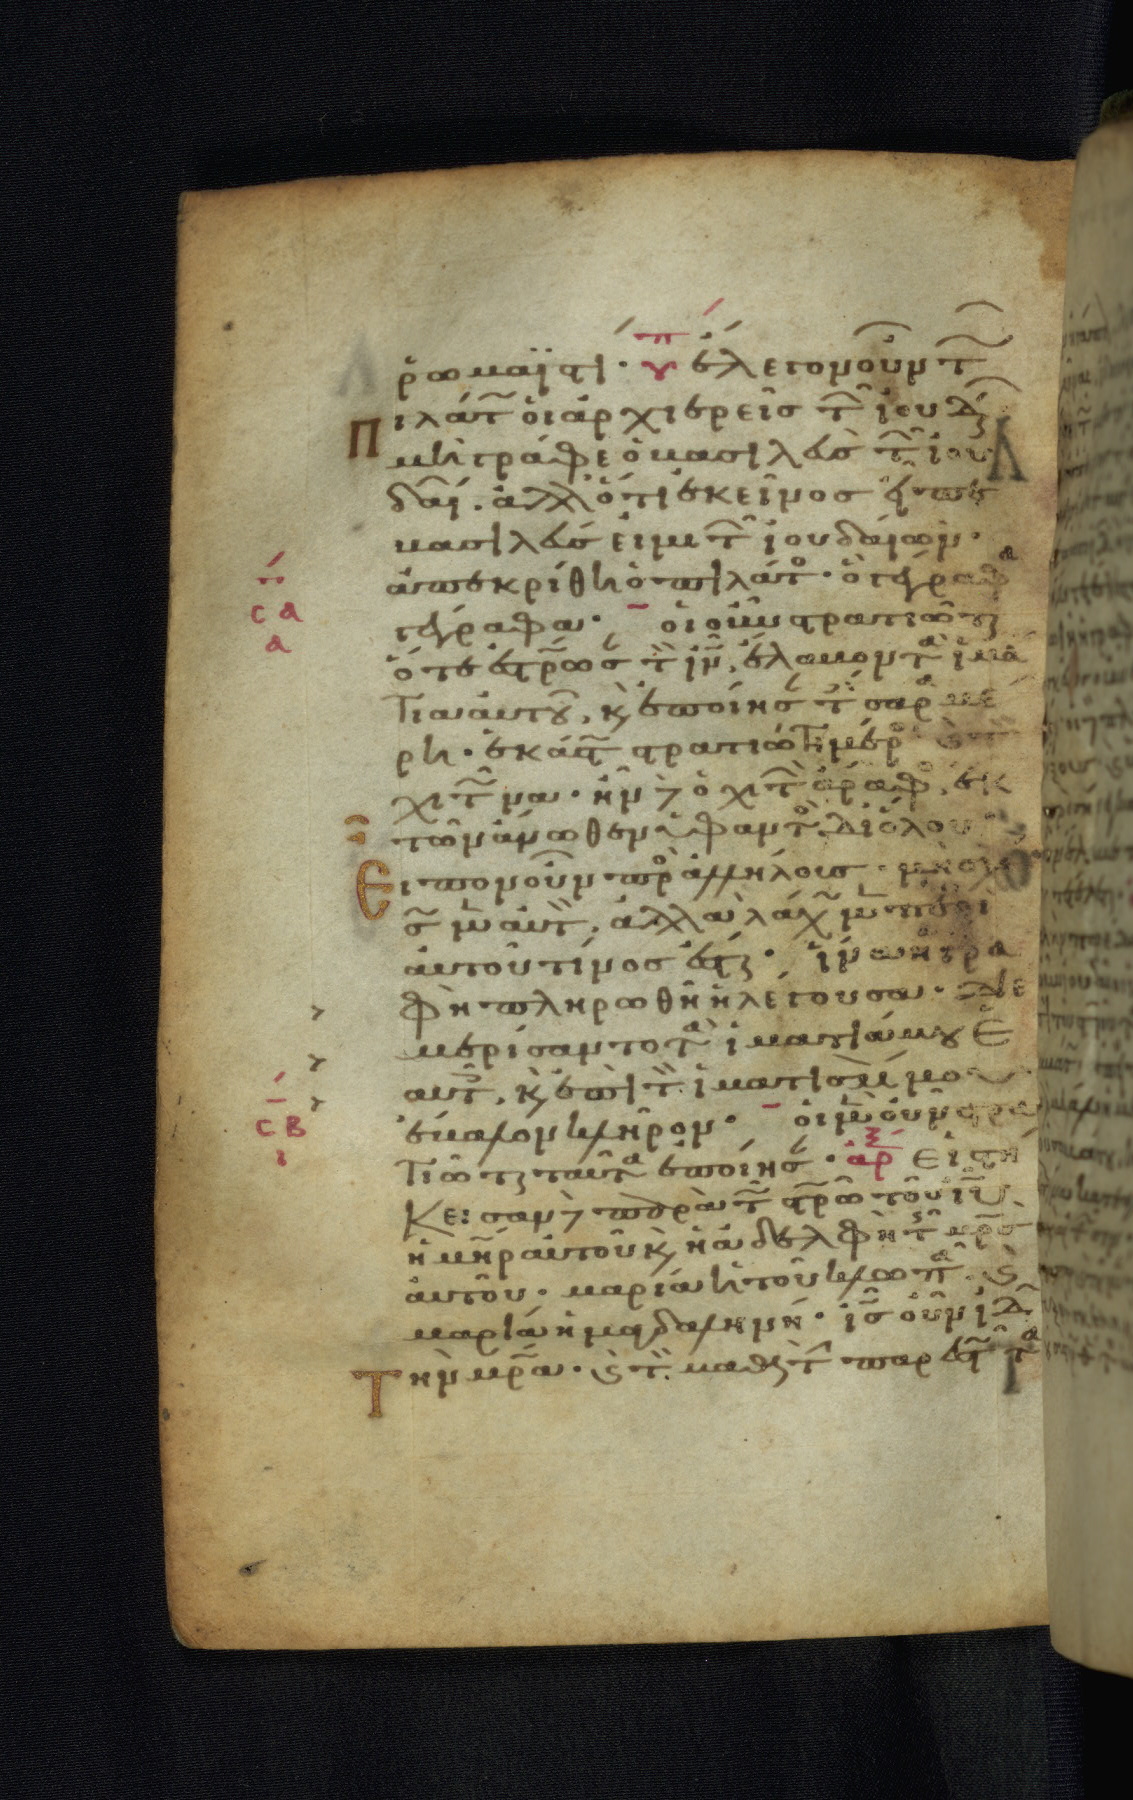 ῥωμαϊστί · ὑπ ἔλεγον οὖν τῶ
Πιλάτω οἱ ἀρχιερεῖς τῶν ἰουδαίων
μὴ γράφε ὁ βασιλεὺς τῶν ἰου
δαίων · ἀλλ' ὅτι ἐκεῖνος εἶπε
βασιλεύς εἰμι τῶν ἰουδαίων ·
ἀπεκρίθη ὁ πιλάτος · ὃ γέγραφα
γέγραφα · οἱ οὖν στρατιῶται
ὅτε ἐσταύρωσαν τὸν ιν, ἔλαβον τὰ ἱμά
τια αὐτοῦ, κ ἐποίησαν τέσσαρα μέ
ρη · ἑκάστω στρατιώτη μέρος κ τὸν
χιτῶνα · ἦν δὲ ὁ χιτὼν ἄραφος, ἐκ
τῶν ἄνωθεν ὑφαντὸς δι' ὅλου
Εἶπον οὖν πρὸς ἀλλήλους · μὴ σχί
σωμεν αὐτόν, ἀλλὰ λάχωμεν περὶ
αὐτοῦ τίνος ἔσται · ἵνα ἡ γρα
φὴ πληρωθῆ ἡ λέγουσα · Διε
μερίσαντο τὰ ἱμάτιά μου ἑ
αυτοῖς, κ ἐπὶ τὸν ἱματισμόν μου
ἔβαλον κλῆρον · οἱ μὲν οὖν στρα
τιῶται ταῦτα ἐποίησαν · ἀρξ Εἱστή
κεισαν δὲ παρὰ τῶ στρω τοῦ ιυ
ἡ μηρ αὐτοῦ κ ἡ ἀδελφὴ τῆς μρς
αὐτοῦ · μαρία ἡ τοῦ κλωπᾶ κ
μαρία ἡ μαγδαληνή · ις οὖν ἰδὼν
Τὴν μρα · κ τὸν μαθητὴν παρεστῶτα
σα
α
σβ
ι